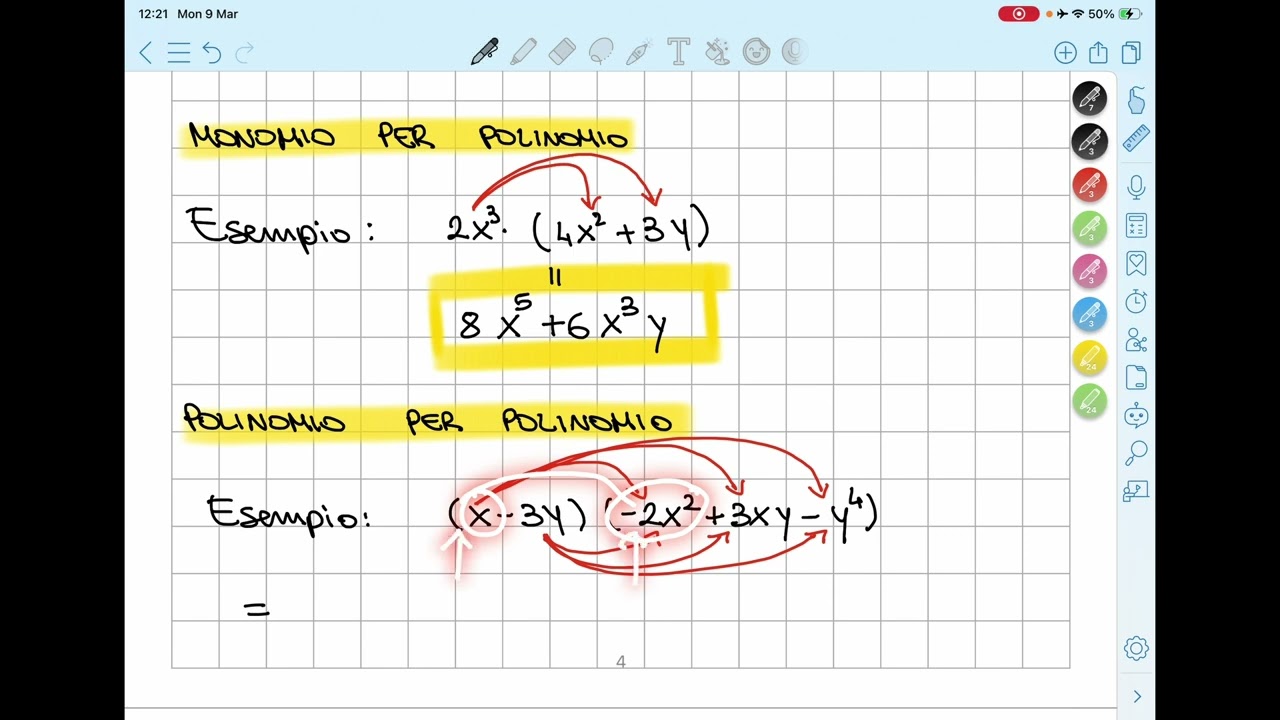 12:21 Mon 9 Mar 50%
MONOMIO PER POLINOMIO
Esempio: 2x³· (4x²+3y)
=
8x⁵+6x³y
POLINOMIO PER POLINOMIO
Esempio: (x-3y) (-2x²+3xy-y⁴)
=
4
7
3
3
3
3
3
24
24
T